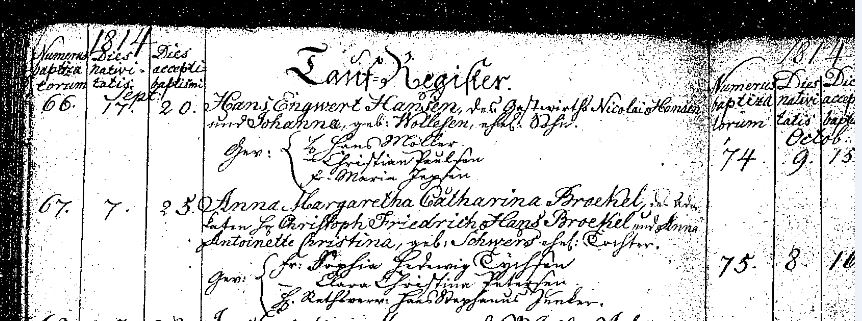 1814
Numerus baptizatorum
Dies nativitatis
Dies accepti baptismi
Tauf-Register.
Sept.
66. 17. 20. Hans Engwert Hansen, des Gastwirths Nicolai Hansen
und Johanna, geb: Wollesen, ehel: Sohn.
Gev: H. Hans Möller
— Christian Paulsen
F. Maria Jepsen
67. 7. 25. Anna Margaretha Catharina Broekel, des
Hr. Christoph Friedrich Hans Broekel und Anna
Antoinette Christina, geb: Schwers ehel: Tochter.
Gev: Fr: Sophia Hedewig Tychsen
— Clara Christina Petersen
H. Rathsverw: Hans Stephanus Junker.
1814
Numerus baptizatorum
Dies nativitatis
Dies
Octob.
74 9. 15
75. 8. 16